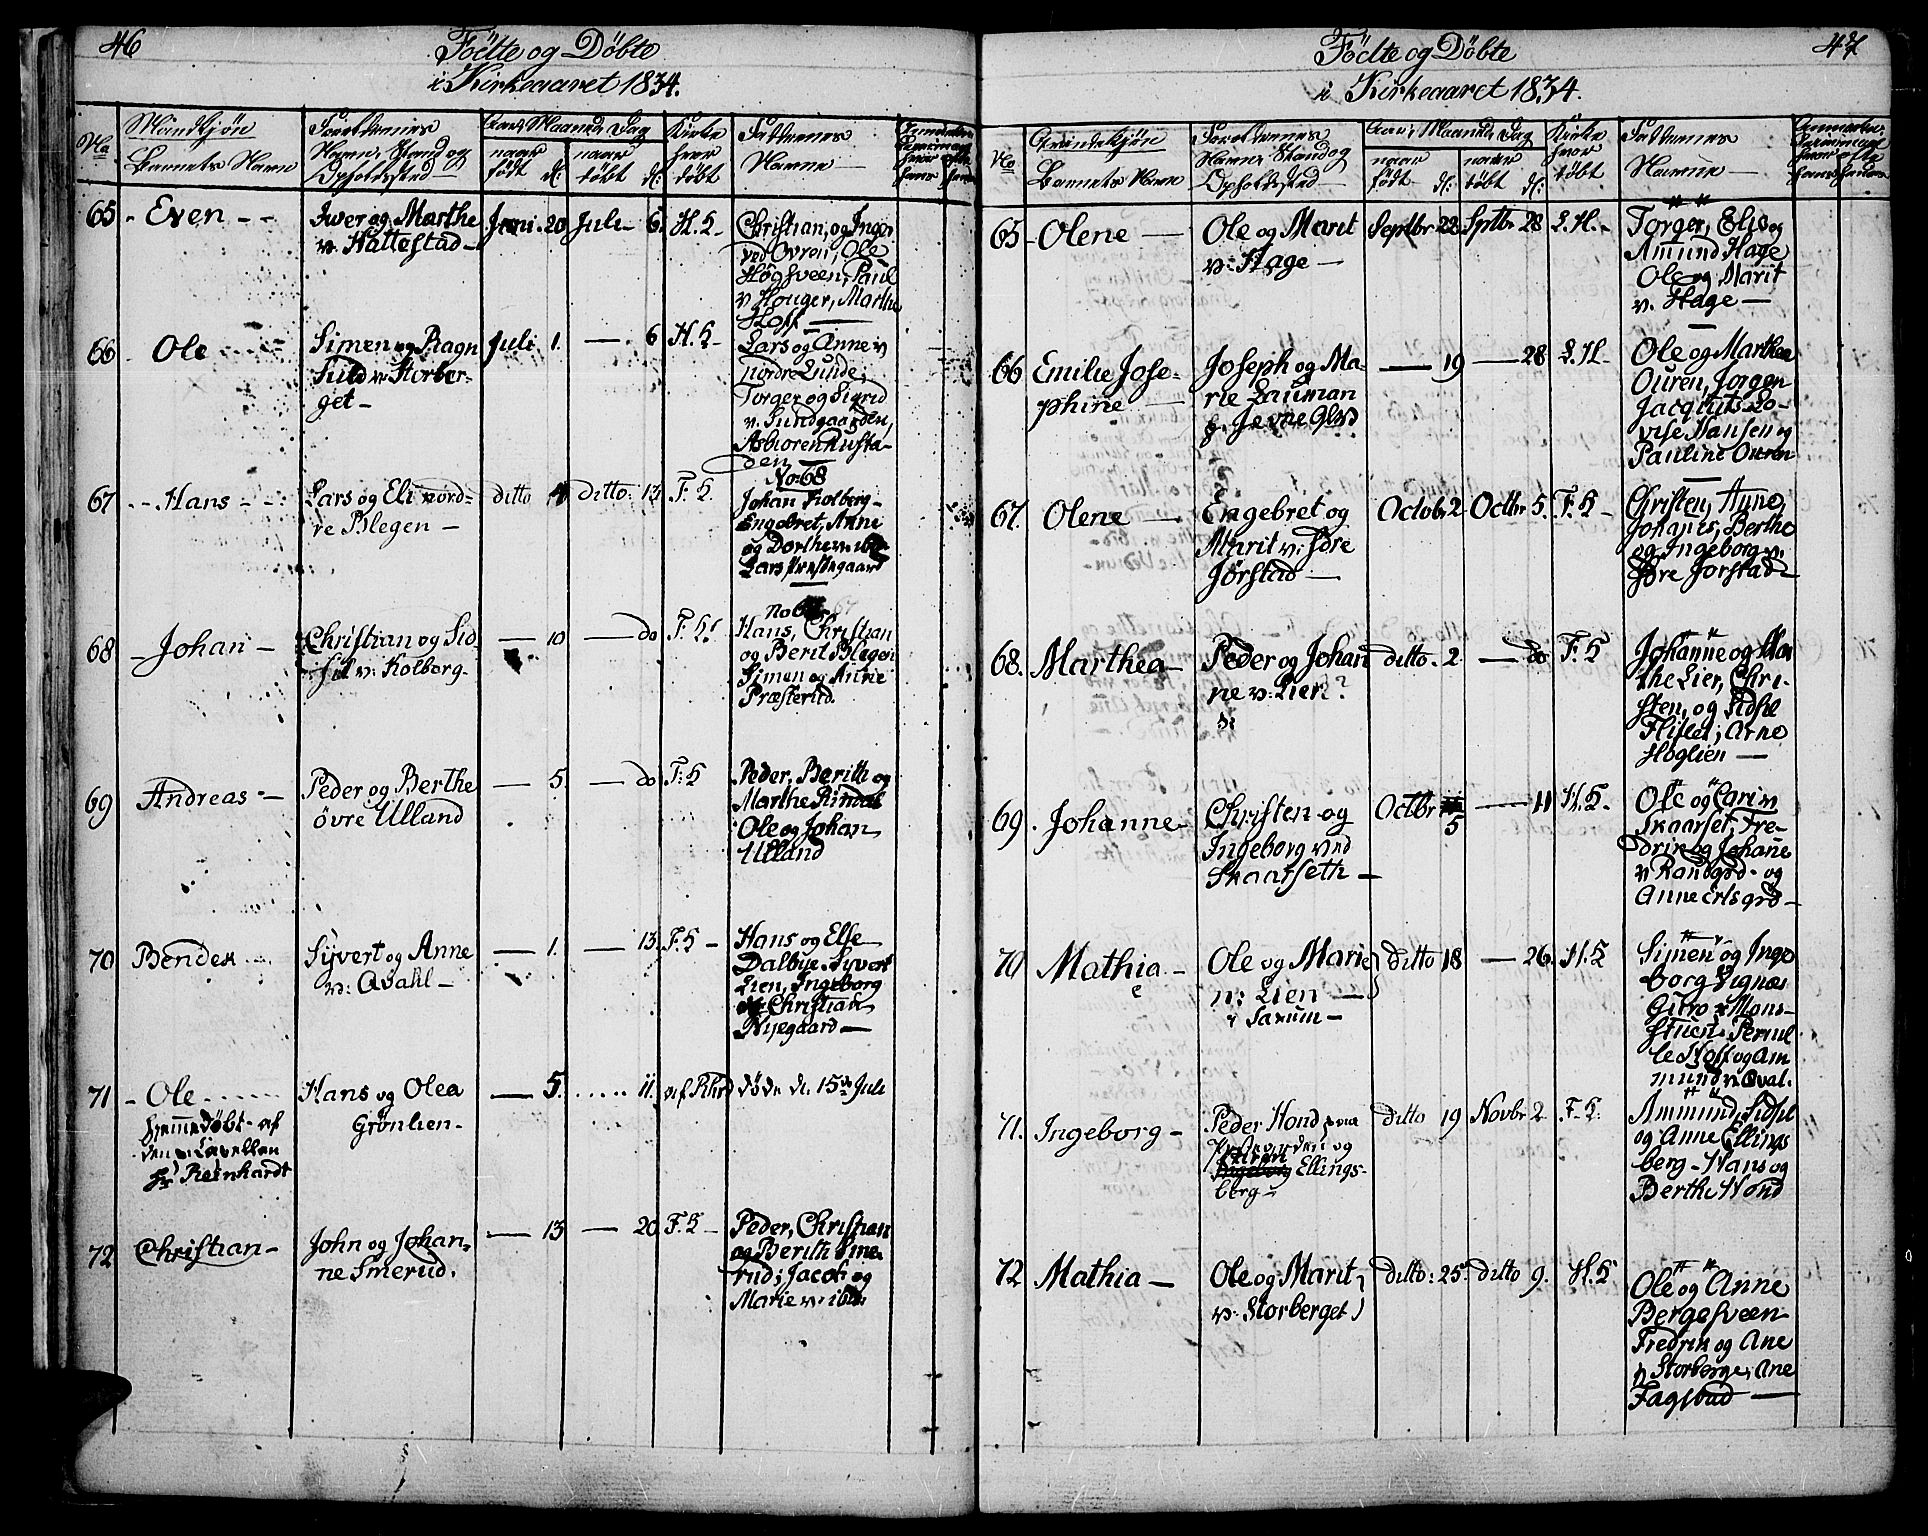 46
Födte og Döbte
i Kirkeaaret 1834.
No
Mandkjön
Barnets Navn
Forældrenes
Navn, Stand og
Opholdssted
Aar, Maaned, Dag
naar
födt d:
naar
döbt d:
Kirke
hvor
döbt
Faddernes
Navne
65 - Even - -
Iwer og Marthe
v. Hattestad -
Juni 20 Jule 6. H. K -
Christian, og Inger
ved Ovren, Ole
Högsveen, Paul
v Houger, Marthe
Hoff
66 - Ole
Simen og Ragn
hild v. Storber-
get -
Juli 1. — 6 H. K -
Lars og Anne v
nordre Lunde,
Torger og Sigrid
v. Lundgaarden,
Asbioren Rusta-
den
67 - - Hans - -
Lars og Eli nord-
re Blegen -
ditto 4 ditto: 13. F. K.
No: 68
Johan Kolberg -
Engebret, Anne
og Dorthe v. ibd
Lars Prestegaard
68 - Johan -
Christian og Sid
sil v. Kolberg.
— 10 — do F. K.
No 67
Hans, Christian
og Berit Blegen
Simen og Anne
Præsterud.
69 Andreas -
Peder og Berthe
övre Ulland
— 5. — do F: K
Peder, Berith og
Marthe Rindal
Ole og Johan
Ulland
70 Bendex
Syvert og Anne
v: Avahl -
— 1. — 13. F. K -
Hans og Else
Dalbye. Syvert
Lien, Ingeborg
og Christian
Nyegaard —
71 - Ole
hjemmedøbt af
den Capellan
Hr Reinhardt
Hans og Olea
Grönlien -
— 5. 11.
døde d. 15de Jule
72 Christian -
John og Johan-
ne Smerud.
— 13 — 20 F. K -
Peder, Christian
og Berith Sme-
rud; Jacob og
Marie v. ibd.
47
Födte og Döbte
i Kirkeaaret 1834.
No
Qvindekjön
Barnets Navn
Forældrenes
Navn, Stand og
Opholdssted
Aar, Maaned, Dag
naar
födt d:
naar
döbt d:
Kirke
hvor
döbt
Faddernes
Navne
65 - Olene —
Ole og Marit
v: Hage —
Septbr 22 Sptbr 28 L. H. -
Torger, Elis og
Amund Hage
Ole og Marit
v. Hage —
66 Emilie Jose-
phine —
Joseph og Ma-
rie Lauman
— 19 — 28 L. H -
Ole og Marthea
Ouren, Jorgen
Jacqvits Lo-
vise Hansen og
Pauline Ouren
67. Olene —
Engebret og
Marit v: Søre
Jørstad —
Octob. 2 Octbr 5. F. K -
Christen, Anne,
Johanes, Berthe
og Ingeborg v.
Søre Jorstad -
68. Marthea -
Peder og Johan
ne v: Lier
ditto. 2 — do F. K
Johanne og Mar
the Lier, Chri-
sten, og Sidsel
Flislet; Arne
Høglien —
69. Johanne -
Christen og
Ingeborg ved
Skaarseth —
Octbr 5 — 11 H. K.
Ole og Cari v
Skaarset, Fre-
drik og Johane
v Randgrd - og
Anne Erlsgrd -
70 Mathia -
Ole og Marie
v: Lien —
i Saxum -
ditto 18 — 26. H. K
Simen og Inge
borg Vignæs
Guro v Mons-
stuen. Pernil
le Hoff og Am
mund v. Qval.
71. Ingeborg -
Peder Hond
og
Ingeborg Ellings-
berg -
ditto 19 Novbr 2. F. K.
Ammund, Sidsil
og Anne Ellings
berg - Hans og
Berthe Hond
72 Mathia -
Ole og Marit
v. Storberget
ditto: 25 ditto 9. H. K
Ole og Anne
Bergesveen
Fredrik og Ane
v Storberge, Ane
Fagstud —